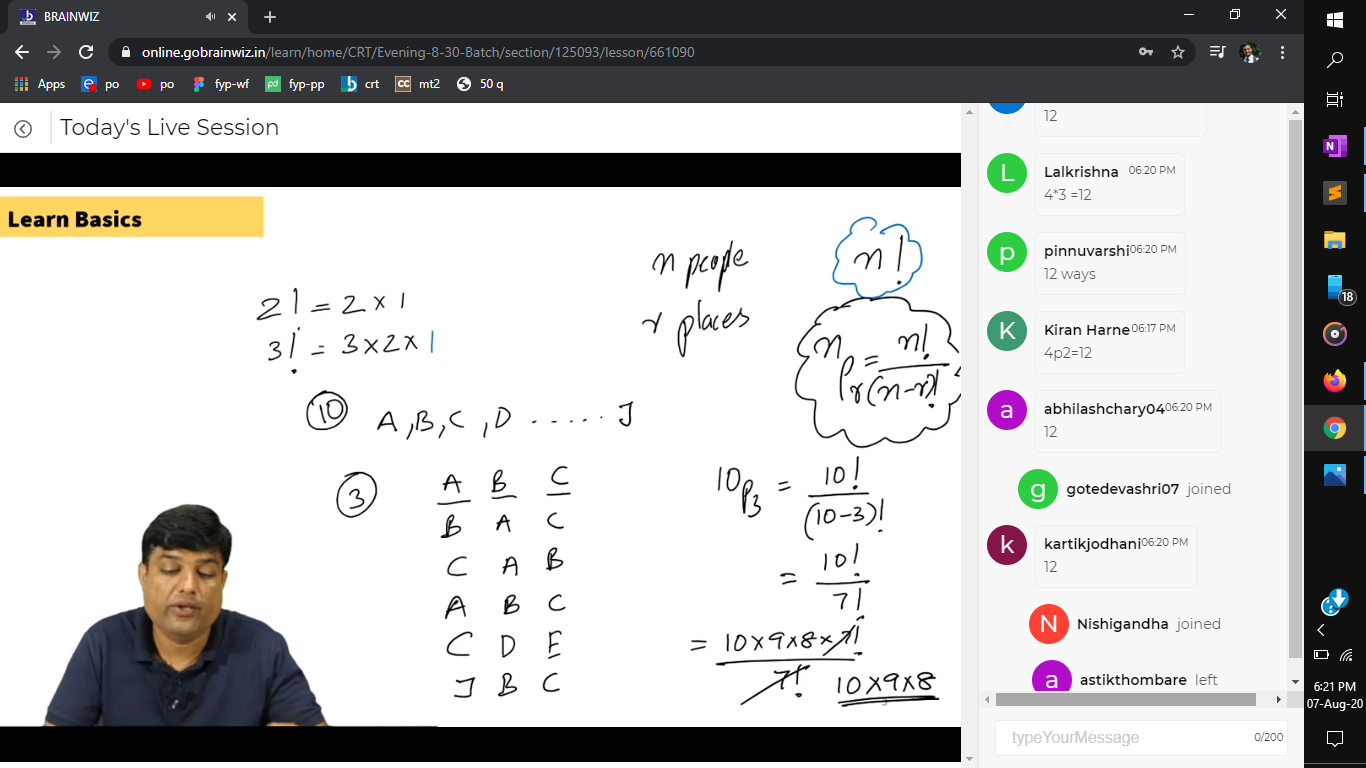 BRAINWIZ
online.gobrainwiz.in/learn/home/CRT/Evening-8-30-Batch/section/125093/lesson/661090
Apps po po fyp-wf fyp-pp crt CC mt2 50 q
Today's Live Session
Learn Basics
2! = 2 × 1
3! = 3×2× 1
n people
r places
n!
nPr = n! / (n-r)!
10 A,B,C,D ...... J
3 A B C
B A C
C A B
A B C
C D E
J B C
10P3 = 10! / (10-3)!
= 10! / 7!
= 10×9×8×7! / 7!
10×9×8
12
L Lalkrishna 06:20 PM
4*3 =12
p pinnuvarshi 06:20 PM
12 ways
K Kiran Harne 06:17 PM
4p2=12
a abhilashchary04 06:20 PM
12
g gotedevashri07 joined
k kartikjodhani 06:20 PM
12
N Nishigandha joined
a astikthombare left
typeYourMessage 0/200
N
18
6:21 PM
07-Aug-20